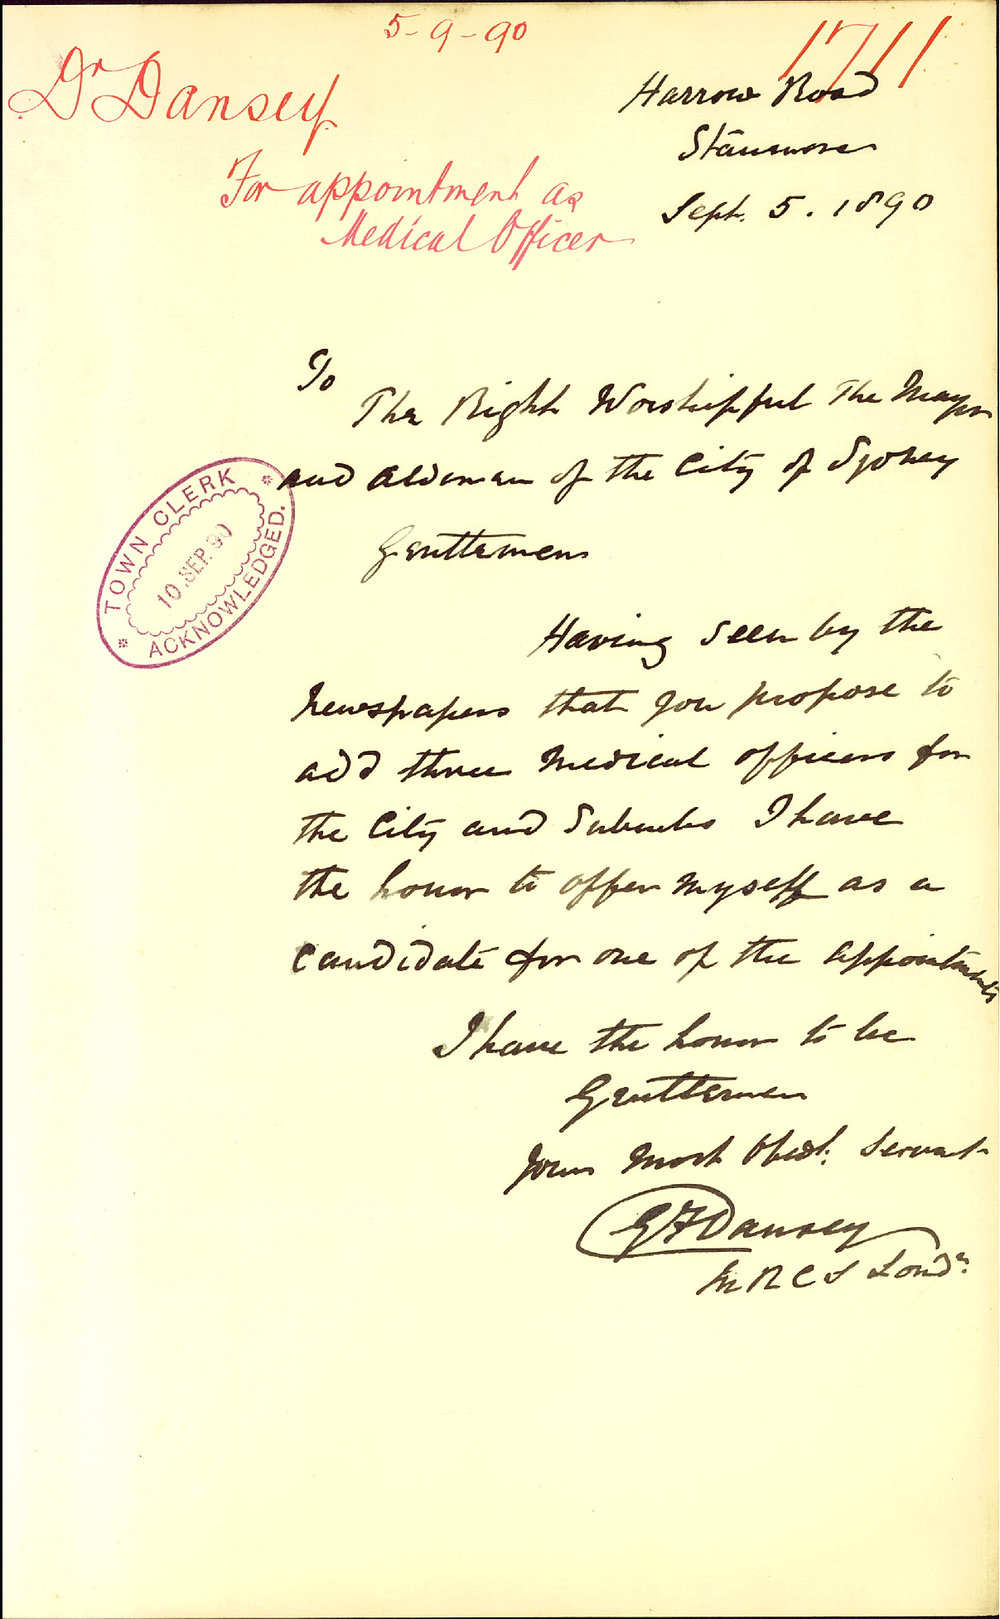 5-9-90
1711
Dr Dansey
For appointment as
Medical Officer
Harrow Road
Stanmore
Sept. 5. 1890
To
The Right Worshipful The Mayor
and Aldermen of the City of Sydney
Gentlemen
TOWN CLERK
10.SEP.90
ACKNOWLEDGED.
Having seen by the
Newspapers that you propose to
add three Medical officers for
the City and Suburbs I have
the honor to offer myself as a
Candidate for one of the appointments
I have the honor to be
Gentlemen
Your Most Obedt. Servant
G F Dansey
M R C S Londn.